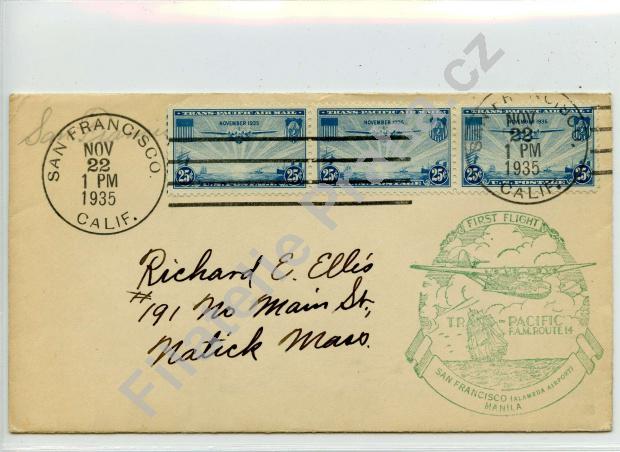 SAN FRANCISCO.
NOV
22
1 PM
1935
CALIF.
TRANS-PACIFIC AIR MAIL
NOVEMBER 1935
25¢ 25¢
TRANS-PACIFIC AIR MAIL
NOVEMBER 1935
25¢ U.S. POSTAGE 25¢
TRANS-PACIFIC AIR MAIL
1935
25¢ U.S. POSTAGE 25¢
SAN FRANCISCO.
NOV
22
1 PM
1935
CALIF.
Richard E. Ellis
#191 No Main St.,
Natick Mass.
FIRST FLIGHT
TRANS-PACIFIC
F.A.M. ROUTE 14
SAN FRANCISCO (ALAMEDA AIRPORT)
MANILA
Filatelie Praha cz